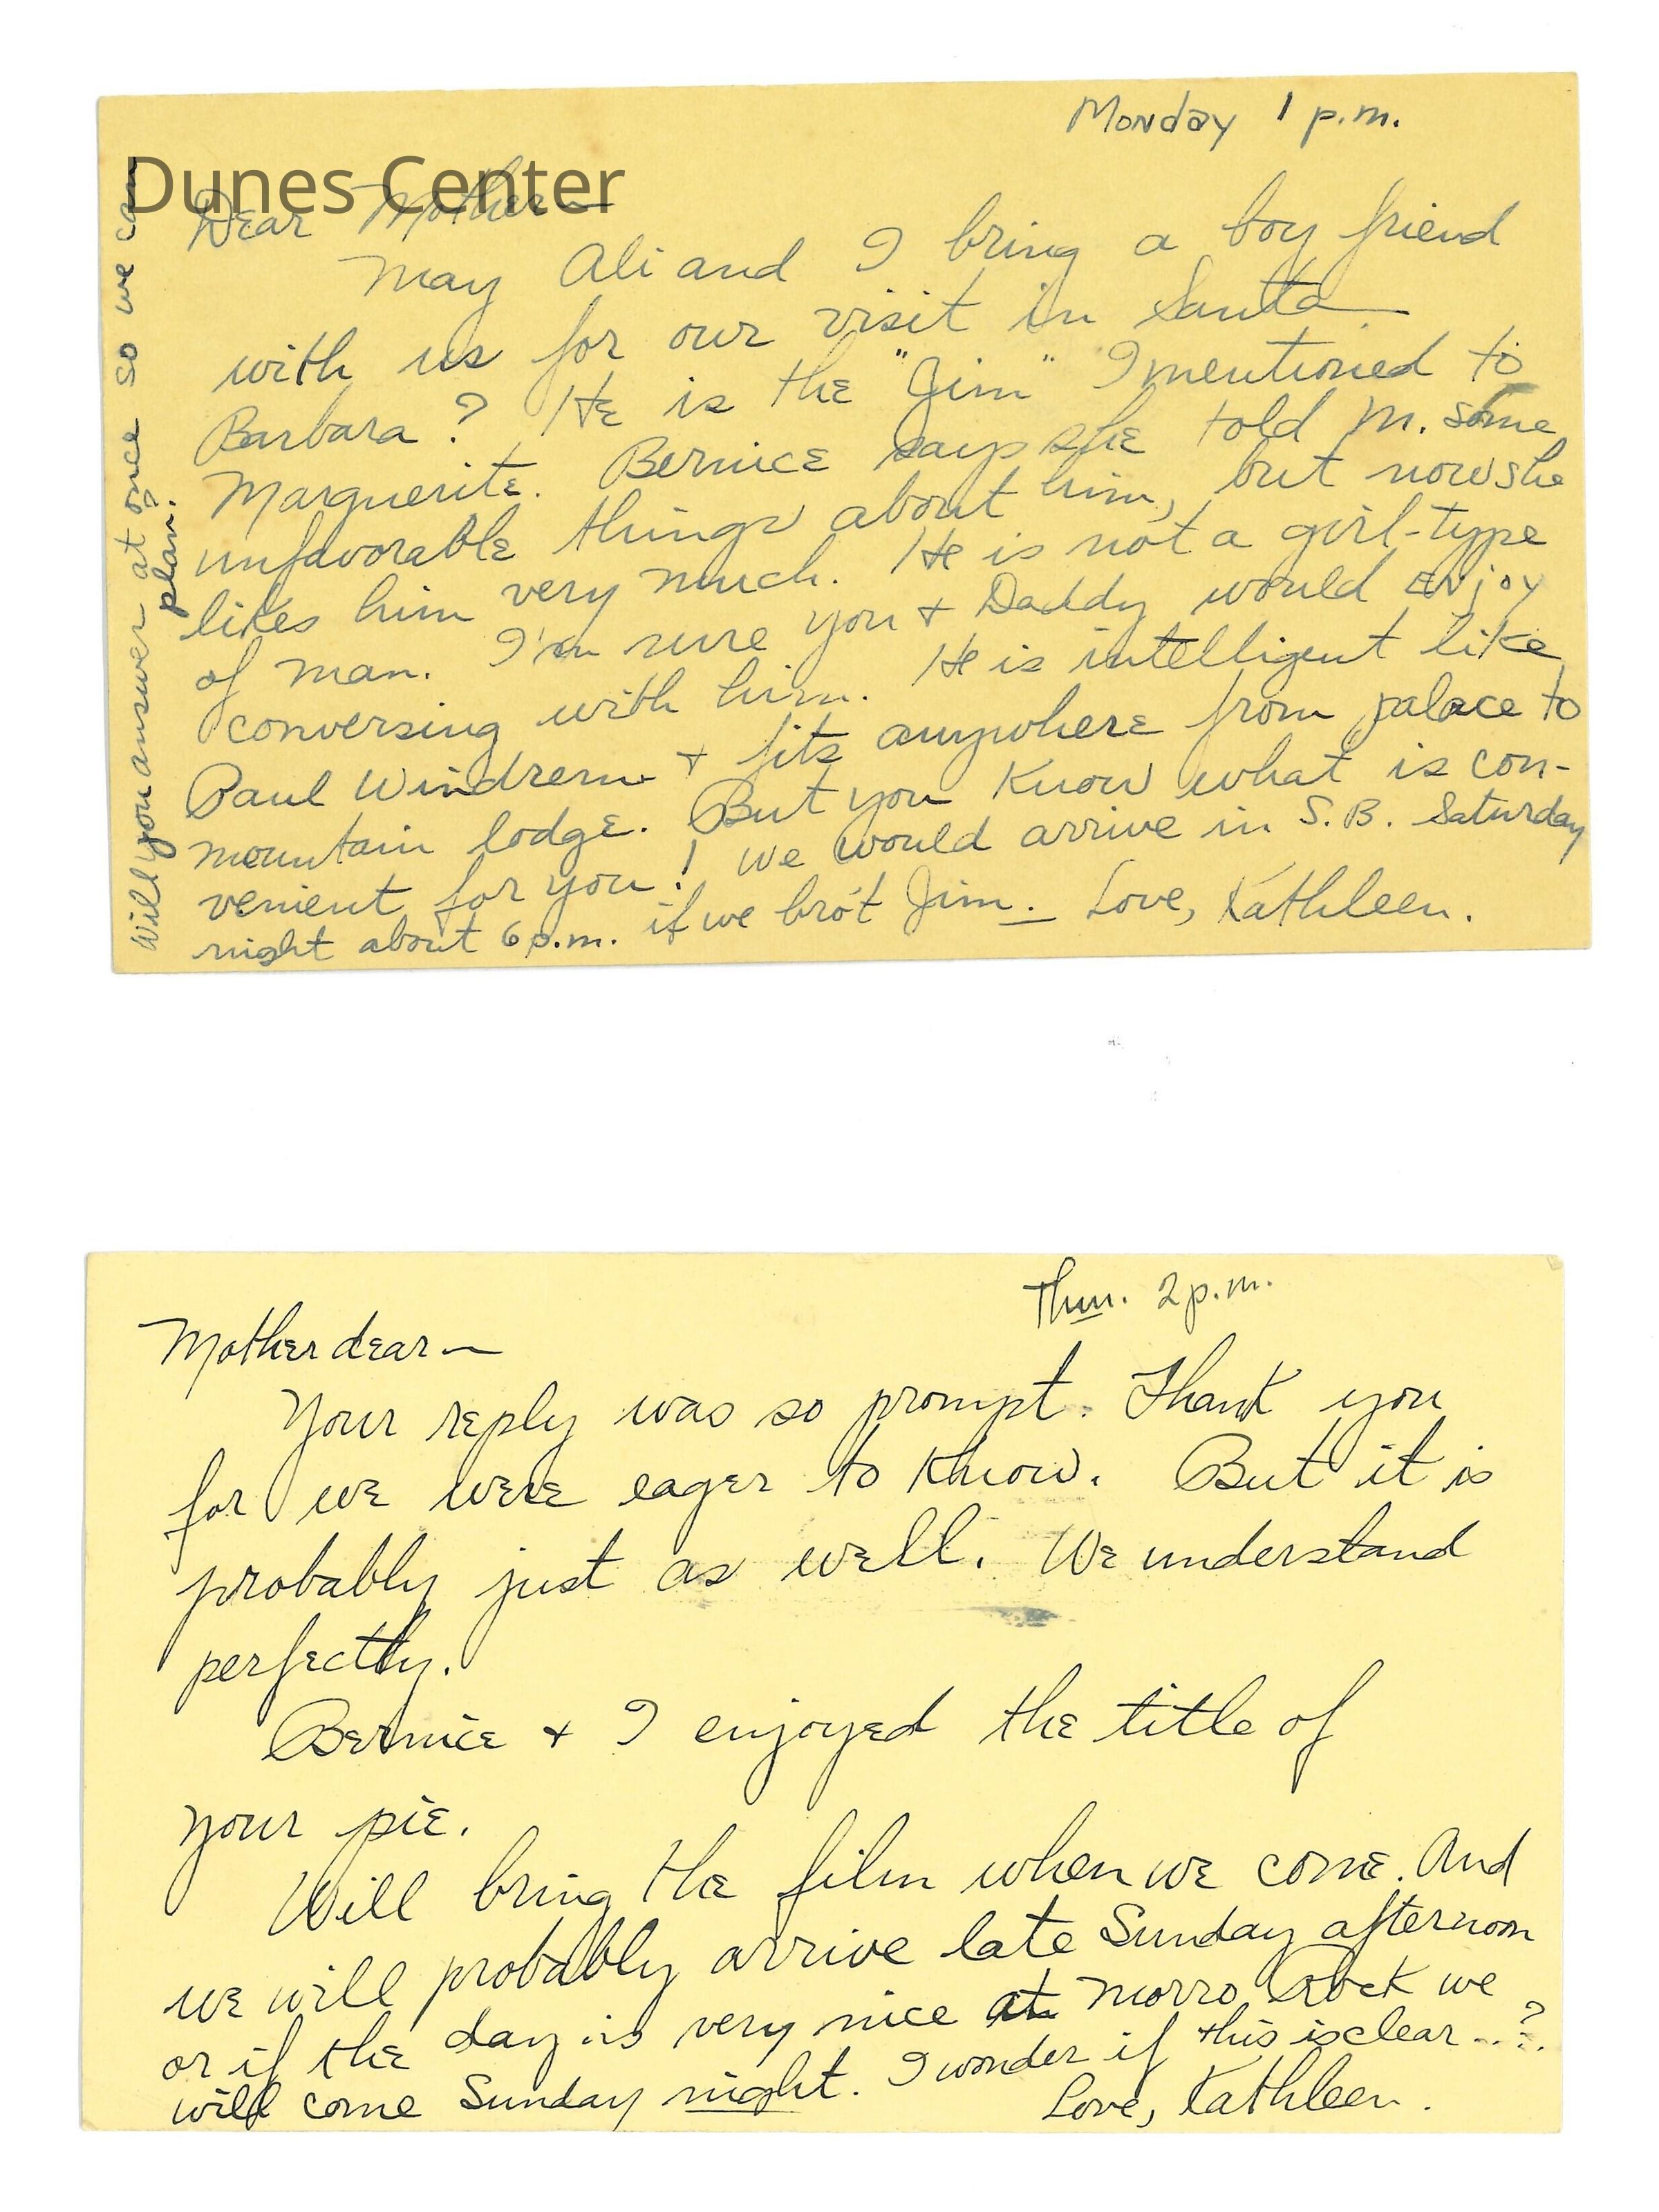 Monday 1 p.m.
Dunes Center
Dear Mother—
May Ali and I bring a boy friend
with us for our visit in Santa
Barbara? He is the "Jim" I mentioned to
Marguerite. Bernice says she told M. some
unfavorable things about him, but now she
likes him very much. He is not a girl-type
of man. I'm sure you + Daddy would enjoy
conversing with him. He is intelligent like
Paul Windrem + fits anywhere from palace to
mountain lodge. But you know what is con-
venient for you! We would arrive in S.B. Saturday
night about 6 p.m. if we bro't Jim. Love, Kathleen.
Will you answer at once so we can
plan.
Thur. 2 p.m.
Mother dear—
Your reply was so prompt. Thank you
for we were eager to know. But it is
probably just as well. We understand
perfectly.
Bernice + I enjoyed the title of
your pie.
Will bring the film when we come. And
we will probably arrive late Sunday afternoon
or if the day is very nice at Morro Rock we
will come Sunday night. I wonder if this is clear...?
Love, Kathleen.